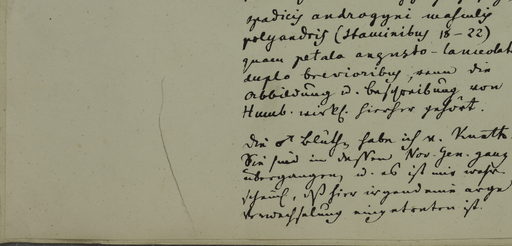 spadicis androgyni masculis
polyandris (staminibus 18-22)
quam petala angusto-lanceolat
duplo brevioribus, wenn die
Abbildung u. Beschreibung von
Humb. wirkl. hierher gehört.
Die ♂ Blüthe habe ich v. Kunth
Sie sind in dessen Nov. Gen. ganz
übergangen, u. es ist mir wahr
scheinl., daß hier irgend eine arge
Verwechselung eingetreten ist.